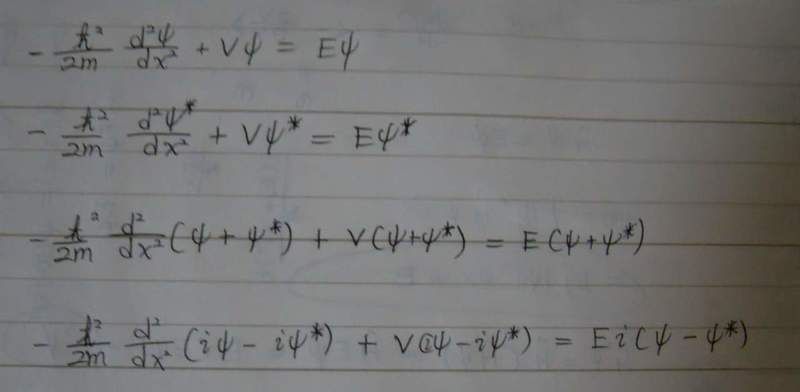 -ħ²/2m d²ψ/dx² + Vψ = Eψ
-ħ²/2m d²ψ*/dx² + Vψ* = Eψ*
-ħ²/2m d²/dx² (ψ + ψ*) + V(ψ+ψ*) = E(ψ+ψ*)
-ħ²/2m d²/dx² (iψ - iψ*) + V(iψ-iψ*) = Ei(ψ-ψ*)